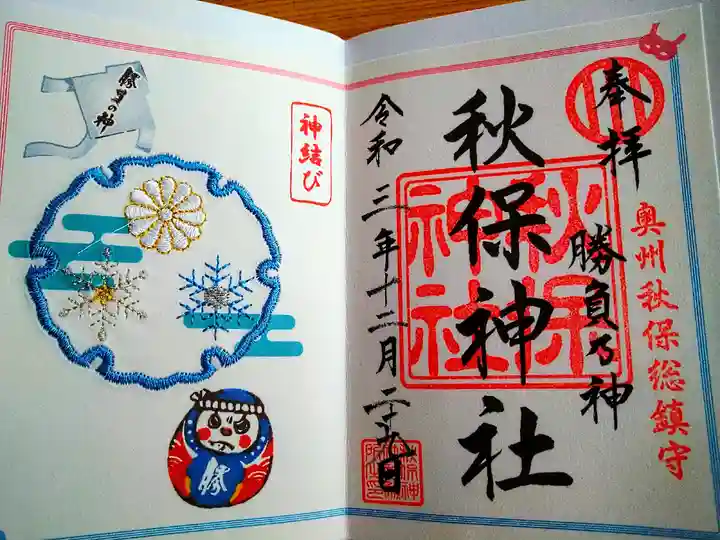 奉拝
奥州秋保総鎮守
勝負乃神
秋保神社
秋保
神社
令和三年十二月二十九日
神結び
勝負の神
勝